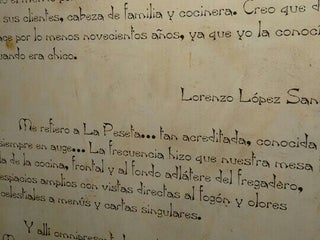 sus clientes, cabeza de familia y cocinera. Creo que d
ace por lo menos novecientos años, ya que yo la conoc
uando era chico.
Lorenzo López San
Me refiero a La Peseta... tan acreditada, conocida
siempre en auge... La frecuencia hizo que nuestra mesa
da de la cocina, frontal y al fondo adlátere del fregadero,
espacios amplios con vistas directas al fogón y olores
celestiales a menús y cartas singulares.
Y alli omnipresent